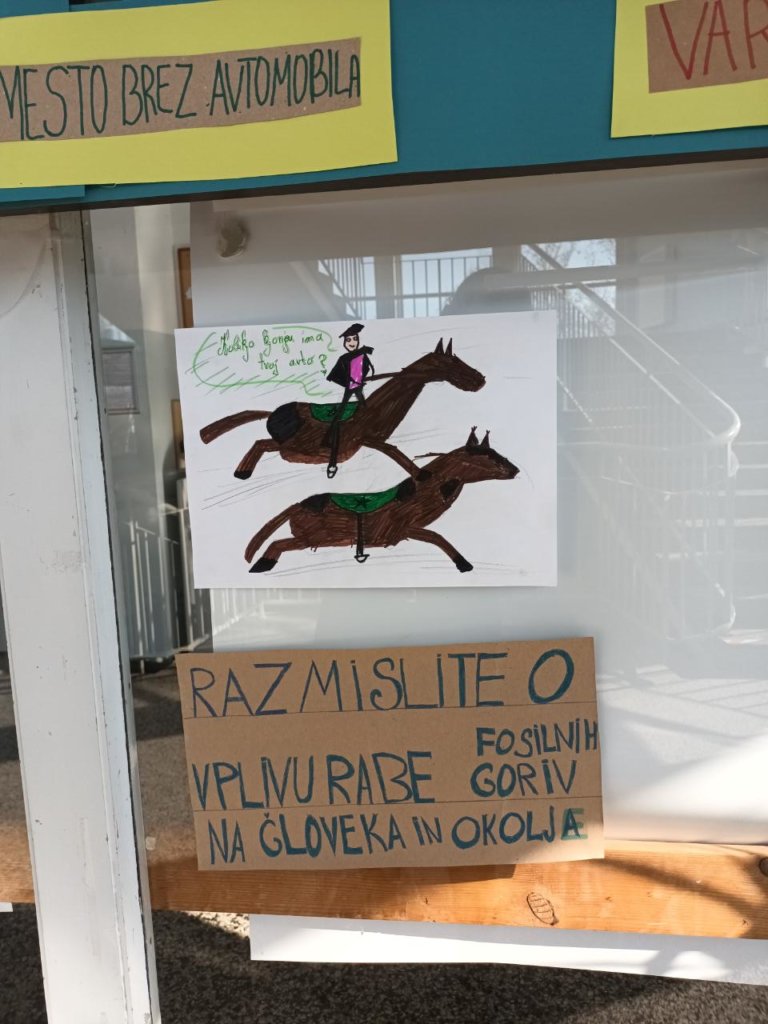 MESTO BREZ AVTOMOBILA
VAR
Koliko konjev ima
tvoj avto?
RAZMISLITE O
VPLIVU RABE FOSILNIH
GORIV
NA ČLOVEKA IN OKOLJE